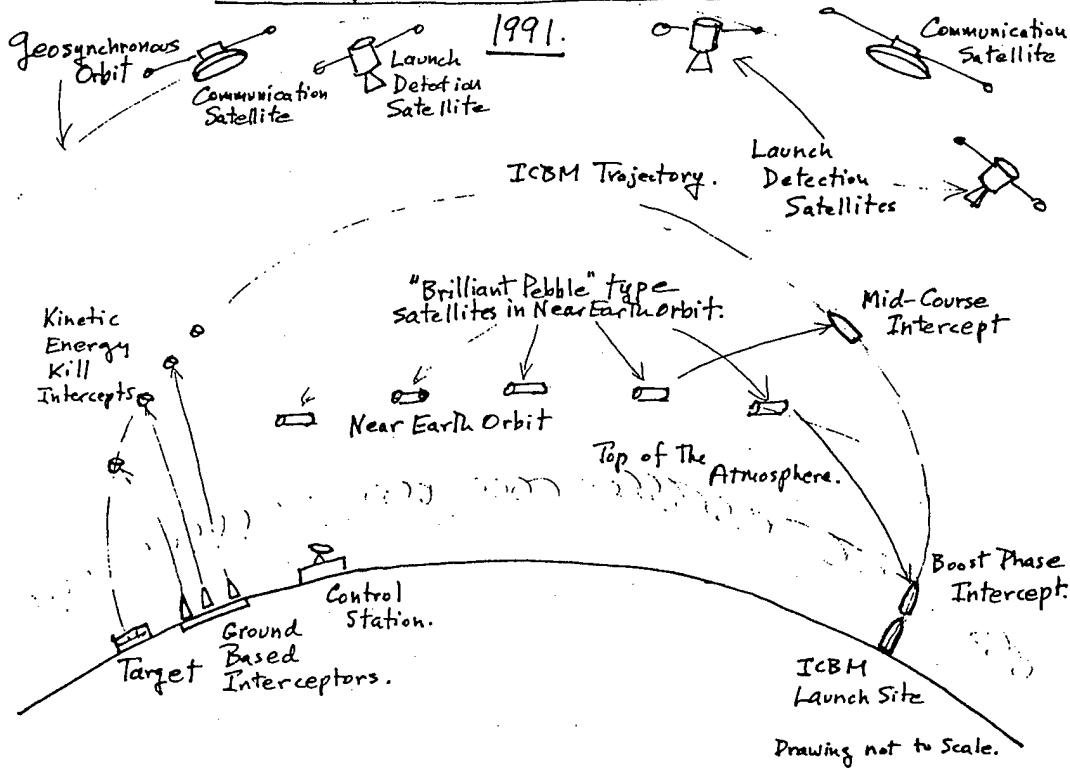 1991.
Geosynchronous
Orbit
Communication
Satellite
Launch
Detection
Satellite
Communication
Satellite
Launch
Detection
Satellites
ICBM Trajectory.
"Brilliant Pebble" type
satellites in Near Earth Orbit.
Mid-Course
Intercept
Kinetic
Energy
Kill
Intercepts
Near Earth Orbit
Top of The
Atmosphere.
Boost Phase
Intercept.
Control
Station.
Ground
Based
Interceptors.
Target
ICBM
Launch Site
Drawing not to Scale.